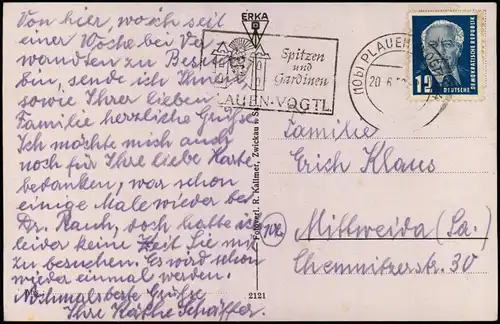 Von hier, wo ich seit
einer Woche bei Ver
wandten zu Besuch
bin, sende ich Ihnen
sowie Ihrer lieben
Familie herzliche Grüße.
Ich möchte mich auch
noch für Ihre liebe Karte
bedanken, war schon
einige Male wieder bei
Dr. Rauh, doch hatte ich
leider keine Zeit Sie mal
zu besuchen. Es wird schon
wieder einmal werden.
Nochmals beste Grüße
Ihre Käthe Schäffer.
ERKA
Fotoverl. R. Kallmer, Zwickau
2121
Spitzen
und
Gardinen
PLAUEN-VOGTL
(10b) PLAUEN
20.6.
DEUTSCHE DEMOKRATISCHE REPUBLIK
12
Familie
Erich Klaus
(10b) Mittweida (Sa.)
Chemnitzerstr. 30